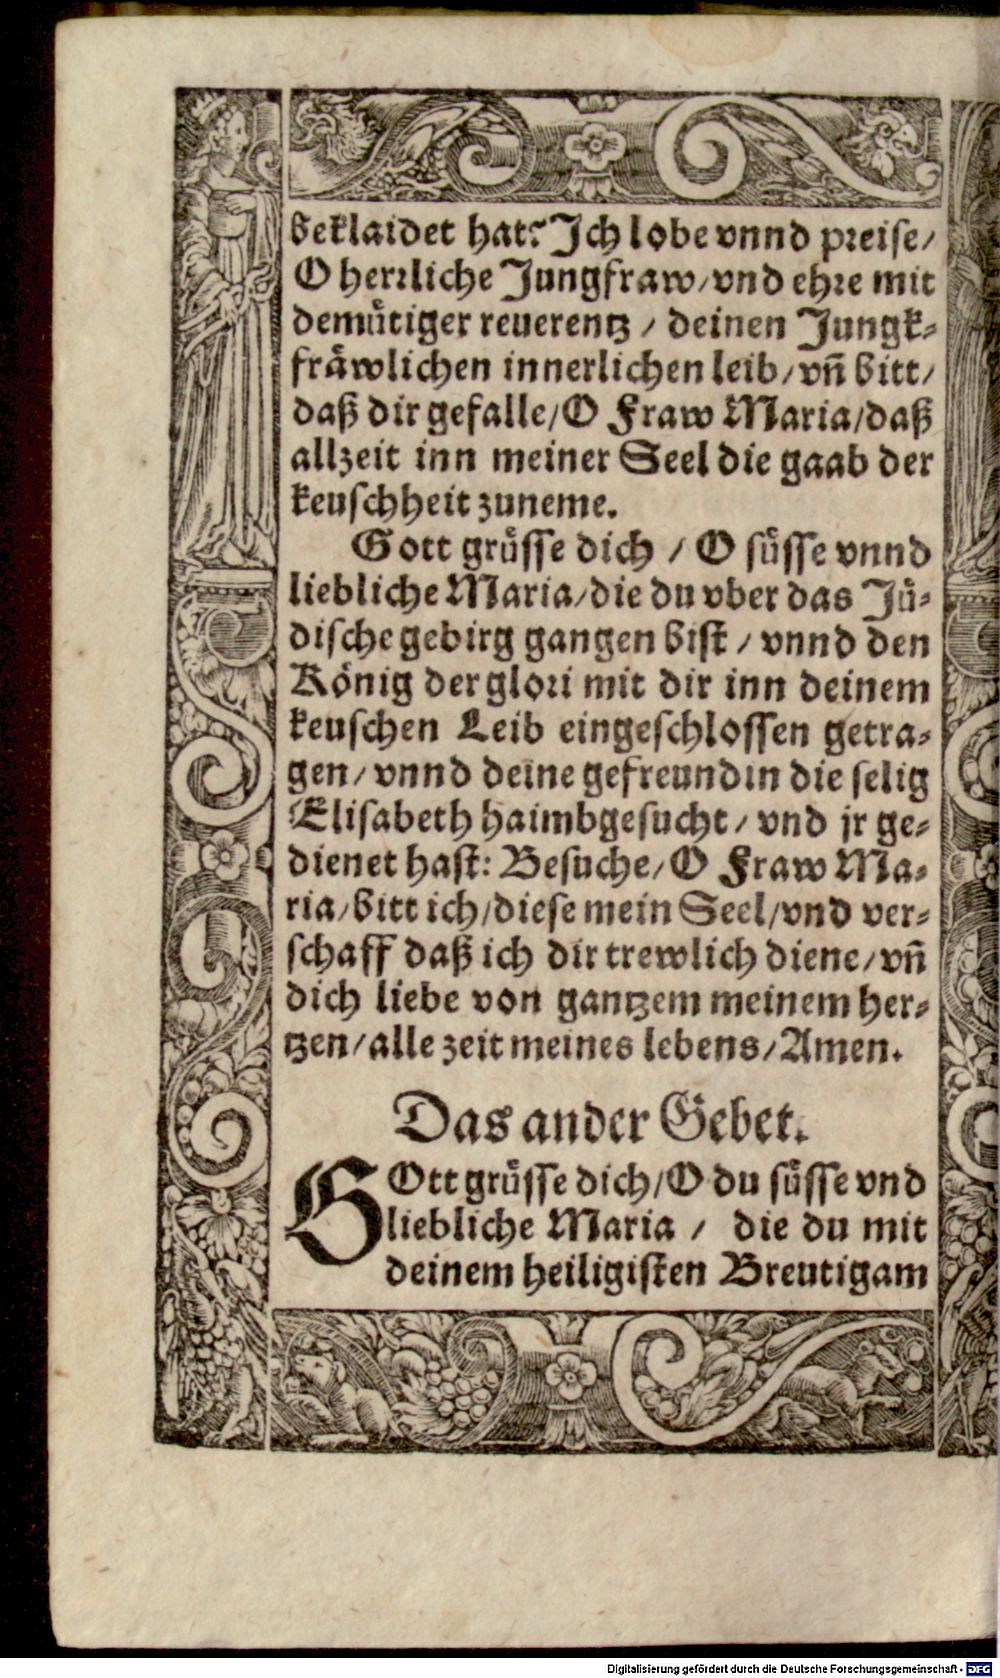 beklaidet hat? Ich lobe vnnd preise/
O herrliche Jungfraw/vnd ehre mit
demuͤtiger reuerentz / deinen Jungk-
fraͤwlichen innerlichen leib/vñ bitt/
daß dir gefalle/O Fraw Maria/daß
allzeit inn meiner Seel die gaab der
keuschheit zuneme.
Gott gruͤsse dich / O suͤsse vnnd
liebliche Maria/die du vber das Juͤ-
dische gebirg gangen bist / vnnd den
Koͤnig der glori mit dir inn deinem
keuschen Leib eingeschlossen getra-
gen/vnnd deine gefreundin die selig
Elisabeth haimbgesucht/vnd jr ge-
dienet hast: Besuche/O Fraw Ma-
ria/bitt ich/diese mein Seel/vnd ver-
schaff daß ich dir trewlich diene/vñ
dich liebe von gantzem meinem her-
tzen/alle zeit meines lebens/Amen.
Das ander Gebet.
GOtt gruͤsse dich/O du suͤsse vnd
liebliche Maria / die du mit
deinem heiligisten Breutigam
Digitalisierung gefördert durch die Deutsche Forschungsgemeinschaft - DFG